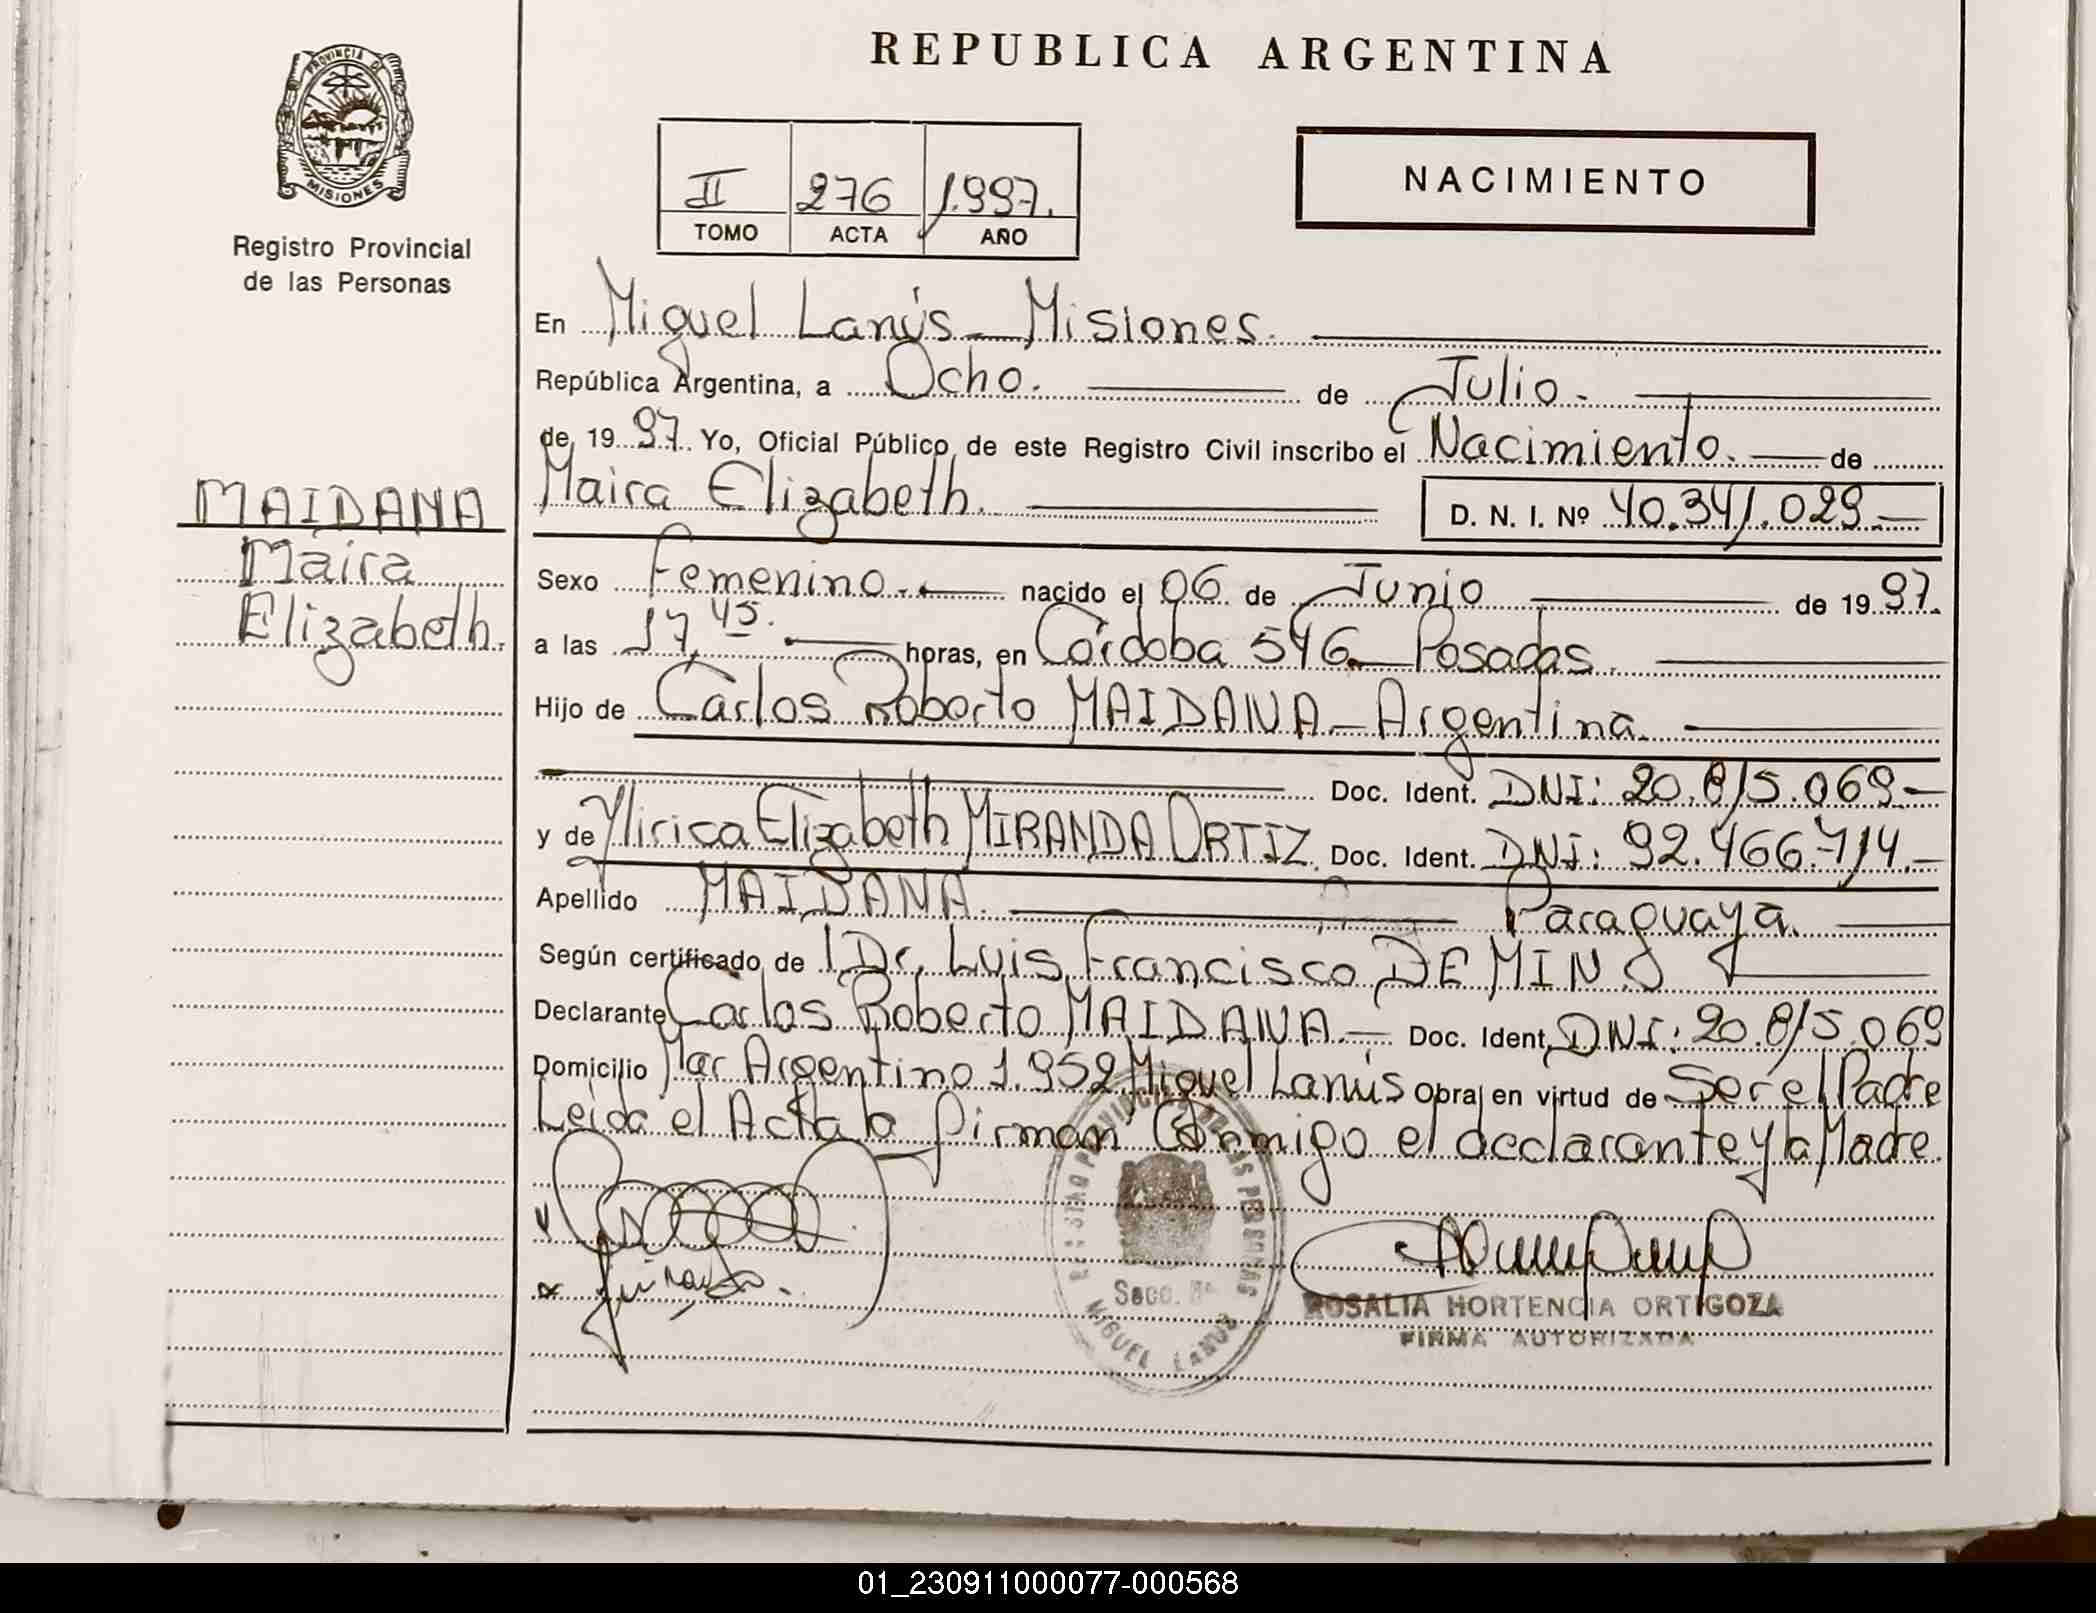 REPUBLICA ARGENTINA
PROVINCIA DE
MISIONES
Registro Provincial
de las Personas
II 276 1.997.
TOMO ACTA AÑO
NACIMIENTO
En Miguel Lanús - Misiones.
República Argentina, a Ocho. de Julio.
de 19 97. Yo, Oficial Público de este Registro Civil inscribo el Nacimiento. de
Maira Elizabeth. D. N. I. Nº 40.341.029.-
MAIDANA
Maira
Elizabeth.
Sexo Femenino. nacido el 06 de Junio de 19 97.
a las 17,45. horas, en Córdoba 546 - Posadas.
Hijo de Carlos Roberto MAIDANA - Argentina.
Doc. Ident. DNI: 20.815.069.-
y de Elizabeth MIRANDA ORTIZ. Doc. Ident. DNI: 92.466.714.-
Apellido MAIDANA. Paraguaya.
Según certificado de Dr. Luis Francisco
Declarante Carlos Roberto MAIDANA.- Doc. Ident. DNI: 20.815.069
Domicilio Mar Argentino 1.952 Miguel Lanús Obra en virtud de Ser el Padre
Leida el Acta la firman Conmigo el declarante y la Madre.
Secc.
MIGUEL LANUS
ROSALIA HORTENCIA ORTIGOZA
FIRMA AUTORIZADA
01_230911000077-000568